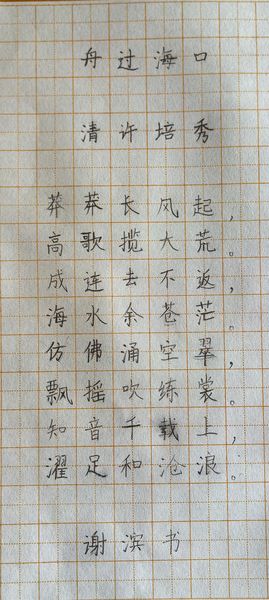 舟过海口
清许培秀
莽莽长风起，
高歌揽大荒。
成连去不返，
海水余苍茫。
仿佛涌空翠，
飘摇吹练裳。
知音千载上，
濯足和沧浪。
谢滨书